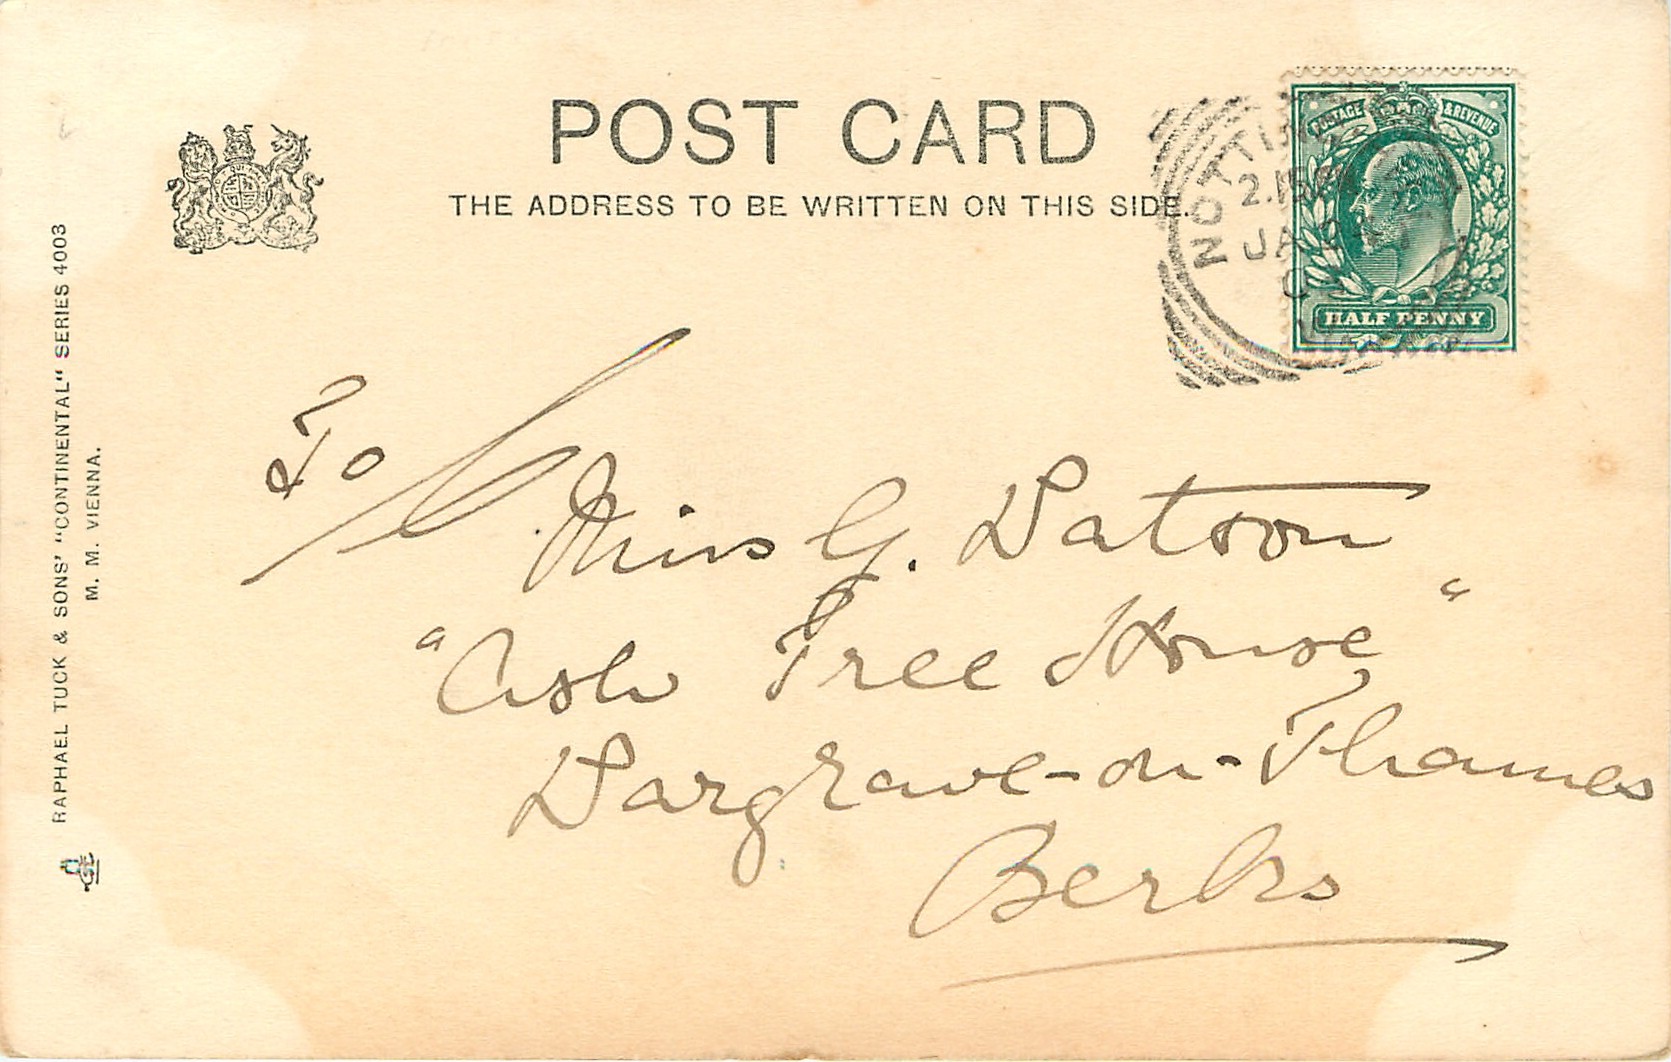 POST CARD
THE ADDRESS TO BE WRITTEN ON THIS SIDE.
POSTAGE & REVENUE
HALF PENNY
2.15
JA
To/
Miss G. Watson
"Ash Tree House"
Wargrave-on-Thames
Berks
RAPHAEL TUCK & SONS' "CONTINENTAL" SERIES 4003
M. M. VIENNA.